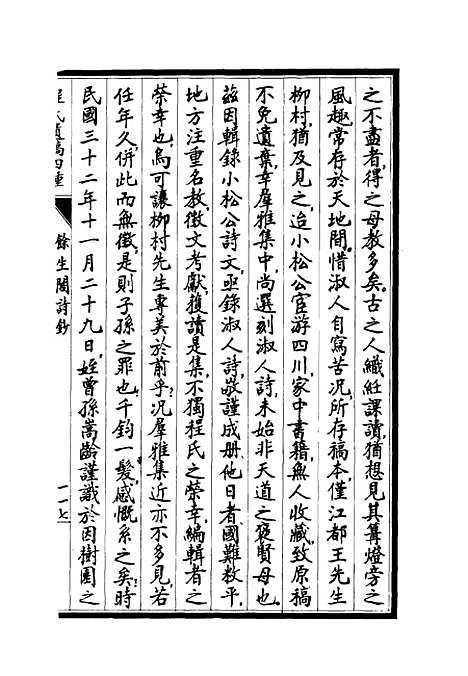 之不盡者，得之母教多矣。古之人織紝課讀，猶想見其篝燈旁之
風趣，常存於天地間。惜淑人自寫苦況，所存稿本，僅江都王先生
柳村，猶及見之，迨小松公官游四川，家中書籍，無人收藏，致原稿
不免遺棄，幸羣雅集中，尚選刻淑人詩，未始非天道之褒賢母也。
茲因輯錄小松公詩文，亟錄淑人詩，敬謹成册，他日者，國難敉平，
地方注重名教，徵文考獻，獲讀是集，不獨程氏之榮幸，編輯者之
榮幸也，烏可讓柳村先生專美於前乎？況羣雅集近亦不多見，若
任年久，併此而無徵，是則子孫之罪也，千鈞一髮，感慨系之矣，時
民國三十二年十一月二十九日，姪曾孫嵩齡謹識於因樹園之
程氏遺稿四種
餘生閣詩鈔
一一七